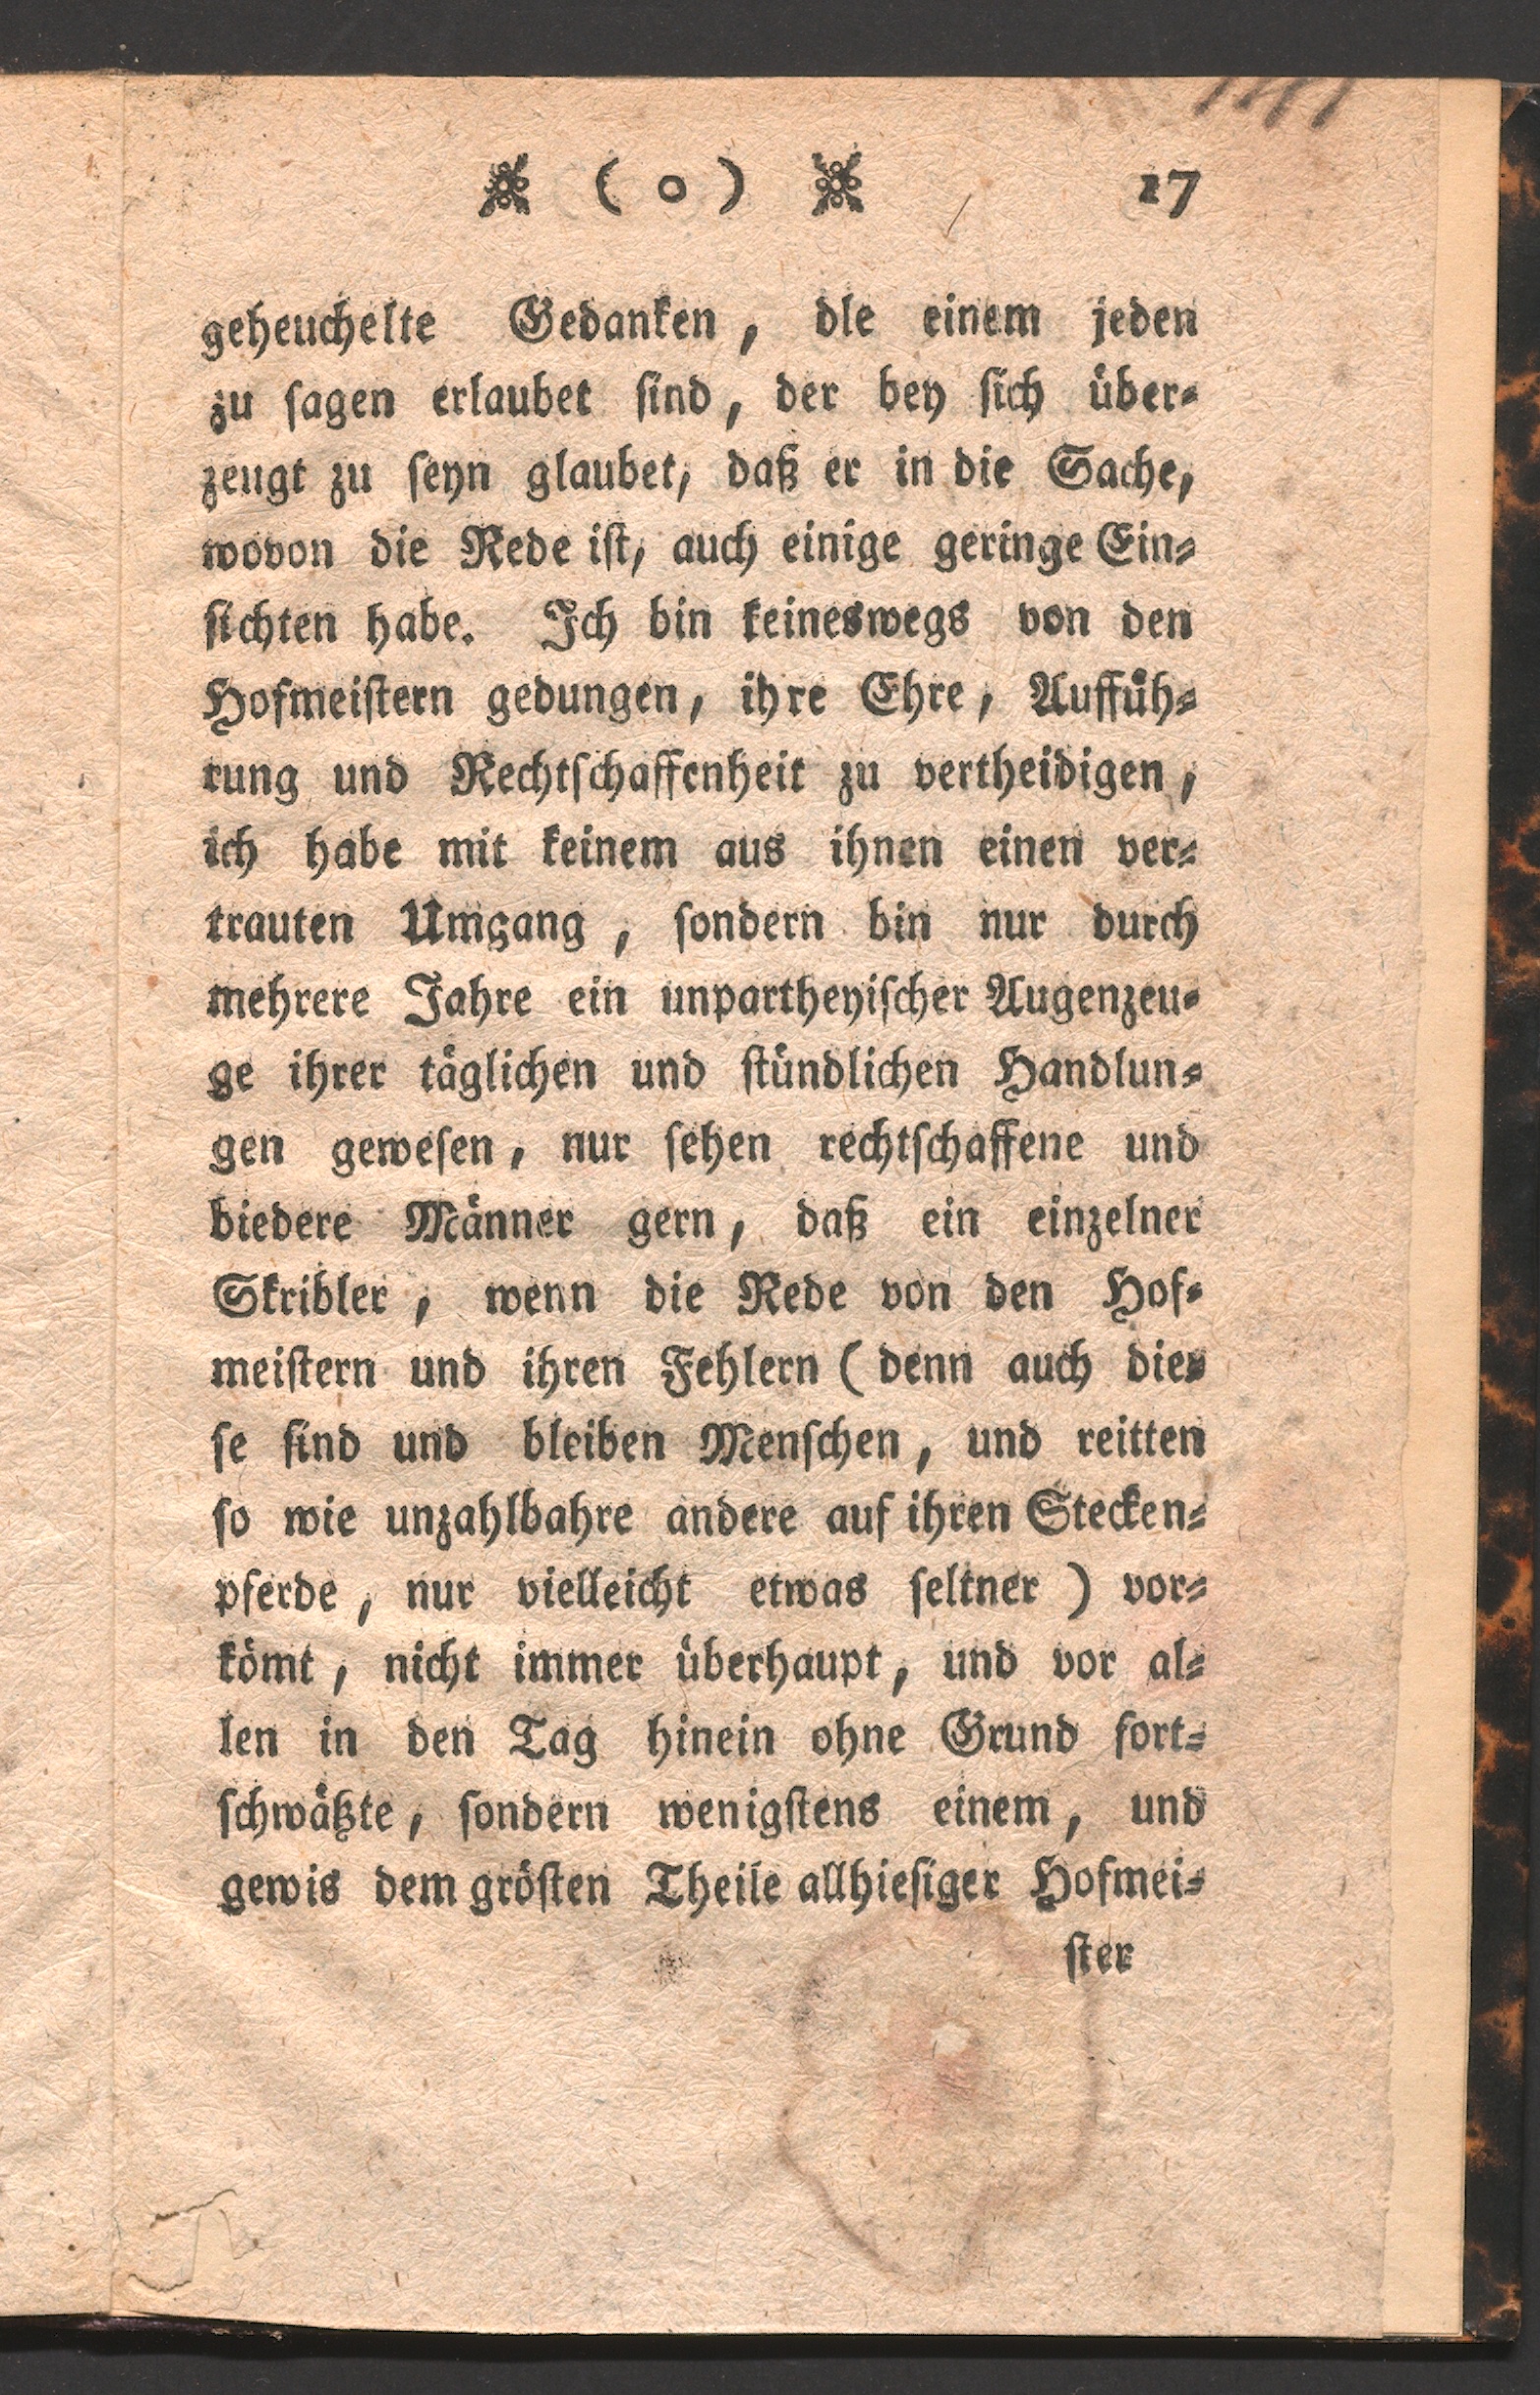 ( o ) 17
geheuchelte Gedanken, dle einem jeden
zu ſagen erlaubet ſind, der bey ſich über⸗
zeugt zu ſeyn glaubet, daß er in die Sache,
wovon die Rede iſt, auch einige geringe Ein⸗
ſichten habe. Ich bin keineswegs von den
Hofmeiſtern gedungen, ihre Ehre, Auffüh⸗
rung und Rechtſchaffenheit zu vertheidigen,
ich habe mit keinem aus ihnen einen ver⸗
trauten Umgang, ſondern bin nur durch
mehrere Jahre ein unpartheyiſcher Augenzeu⸗
ge ihrer täglichen und ſtündlichen Handlun⸗
gen geweſen, nur ſehen rechtſchaffene und
biedere Männer gern, daß ein einzelner
Skribler, wenn die Rede von den Hof⸗
meiſtern und ihren Fehlern (denn auch die⸗
ſe ſind und bleiben Menſchen, und reitten
ſo wie unzahlbahre andere auf ihren Stecken⸗
pferde, nur vielleicht etwas ſeltner) vor⸗
kömt, nicht immer überhaupt, und vor al⸗
len in den Tag hinein ohne Grund fort⸗
ſchwätzte, ſondern wenigſtens einem, und
gewis dem gröſten Theile allhieſiger Hofmei⸗
ſter